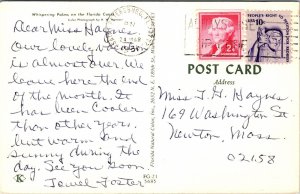 Whispering Palms on the Florida Coast
Dear Miss Haynes,
Our lovely vacation
is almost over. We
leave here the end
of the month. It
has been cooler
than other years,
but warm and
sunny during the
day. See you soon
Jewel Foster
K
PG 71
5685
2¢
PEOPLE'S RIGHT
10c
POST CARD
Address
Miss T. H. Haynes
169 Washington St.
Newton, Mass.
02158